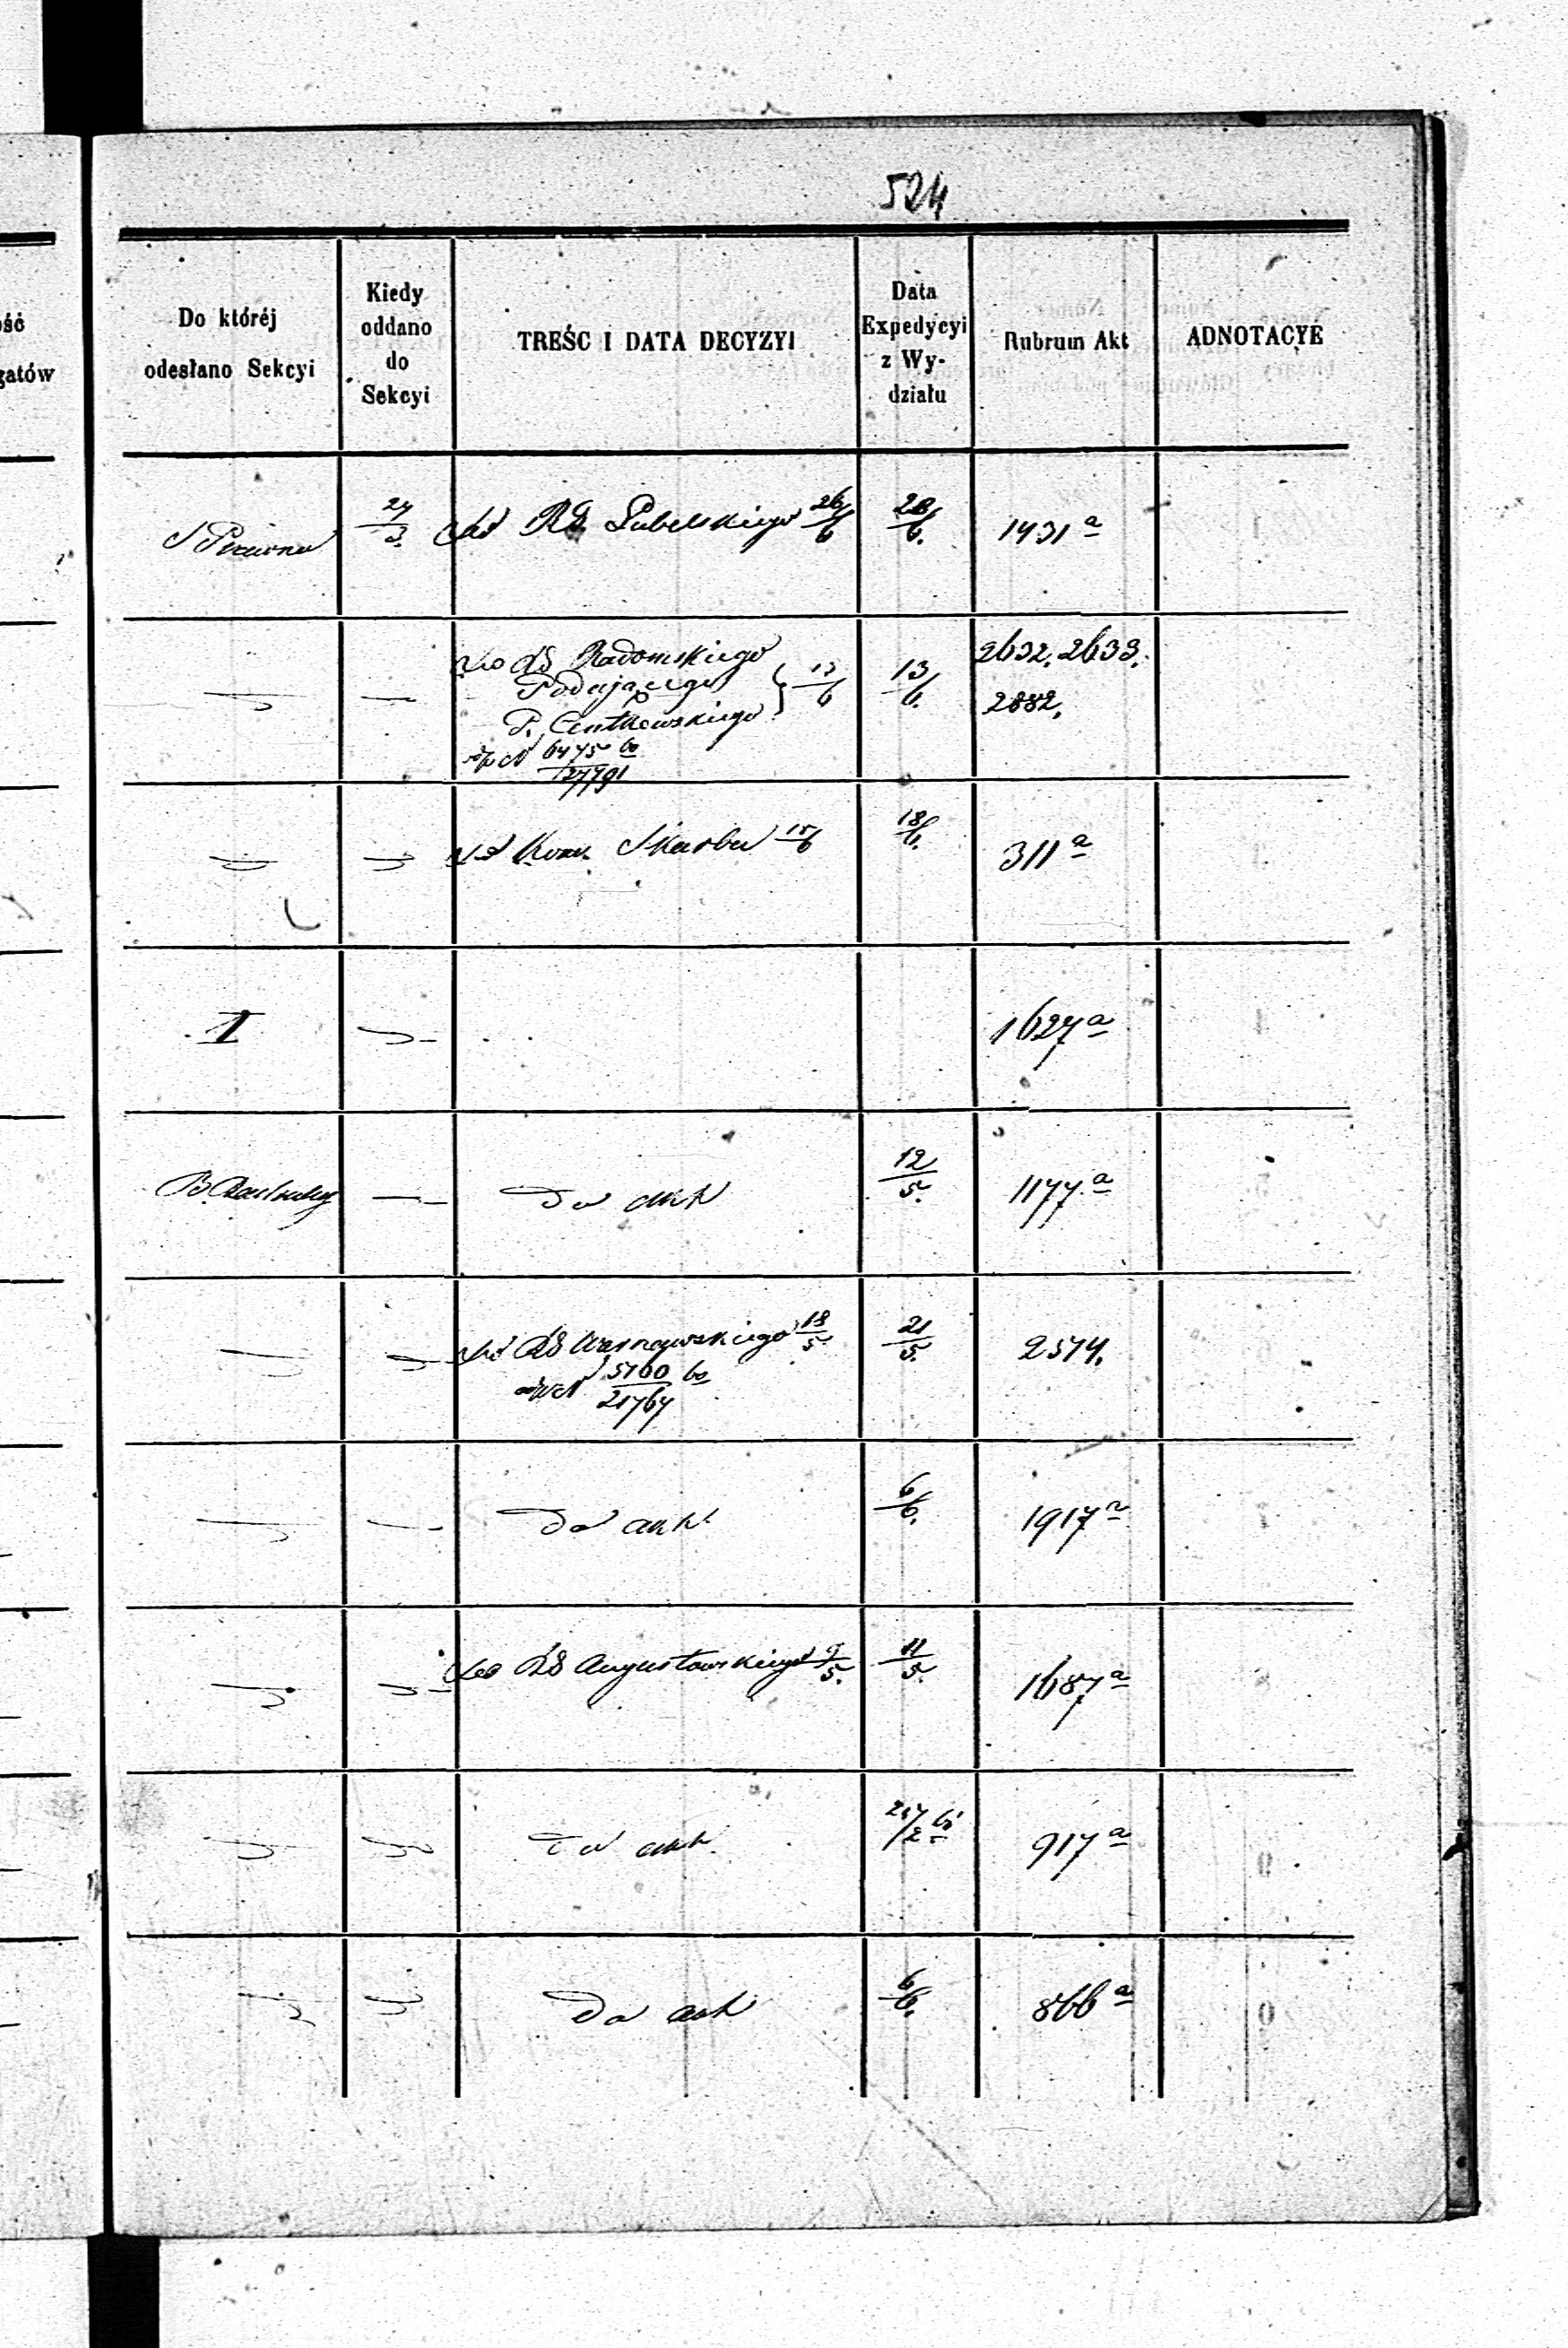 524
ść
gatów
Do któréj odesłano Sekcyi
Kiedy oddano do Sekcyi
TREŚC I DATA DECYZYI
Data Expedycyi z Wydziału
Rubrum Akt
ADNOTACYE
S Prawna 27/3. Do RG Lubelskiego 26/6 28/6. 1431 a
Do RG Radomskiego
Podająego
P. Centkowskiego } 13/6 13/6. 2632. 2633.
2882.
N 6475 60
27791
Kom. Skarbu 15/6 18/6. 311 a
I 1627 a
do akt 12/5. 1177 a
Do RG Warszawskiego 18/5. 21/5. 2574.
N 5160 60
21767
do akt 6/6. 1917 a
Do RG Augustowskiego 9/5. 11/5. 1687 a
do akt. 917 a
Do akt 6/6. 866 a